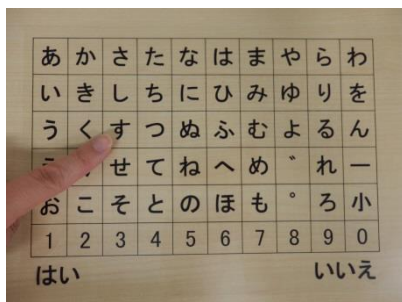 あ か さ た な は ま や ら わ
い き し ち に ひ み ゆ り を
う く す つ ぬ ふ む よ る ん
せ て ね へ め ゛ れ ー
お こ そ と の ほ も ゜ ろ 小
1 2 3 4 5 6 7 8 9 0
はい いいえ